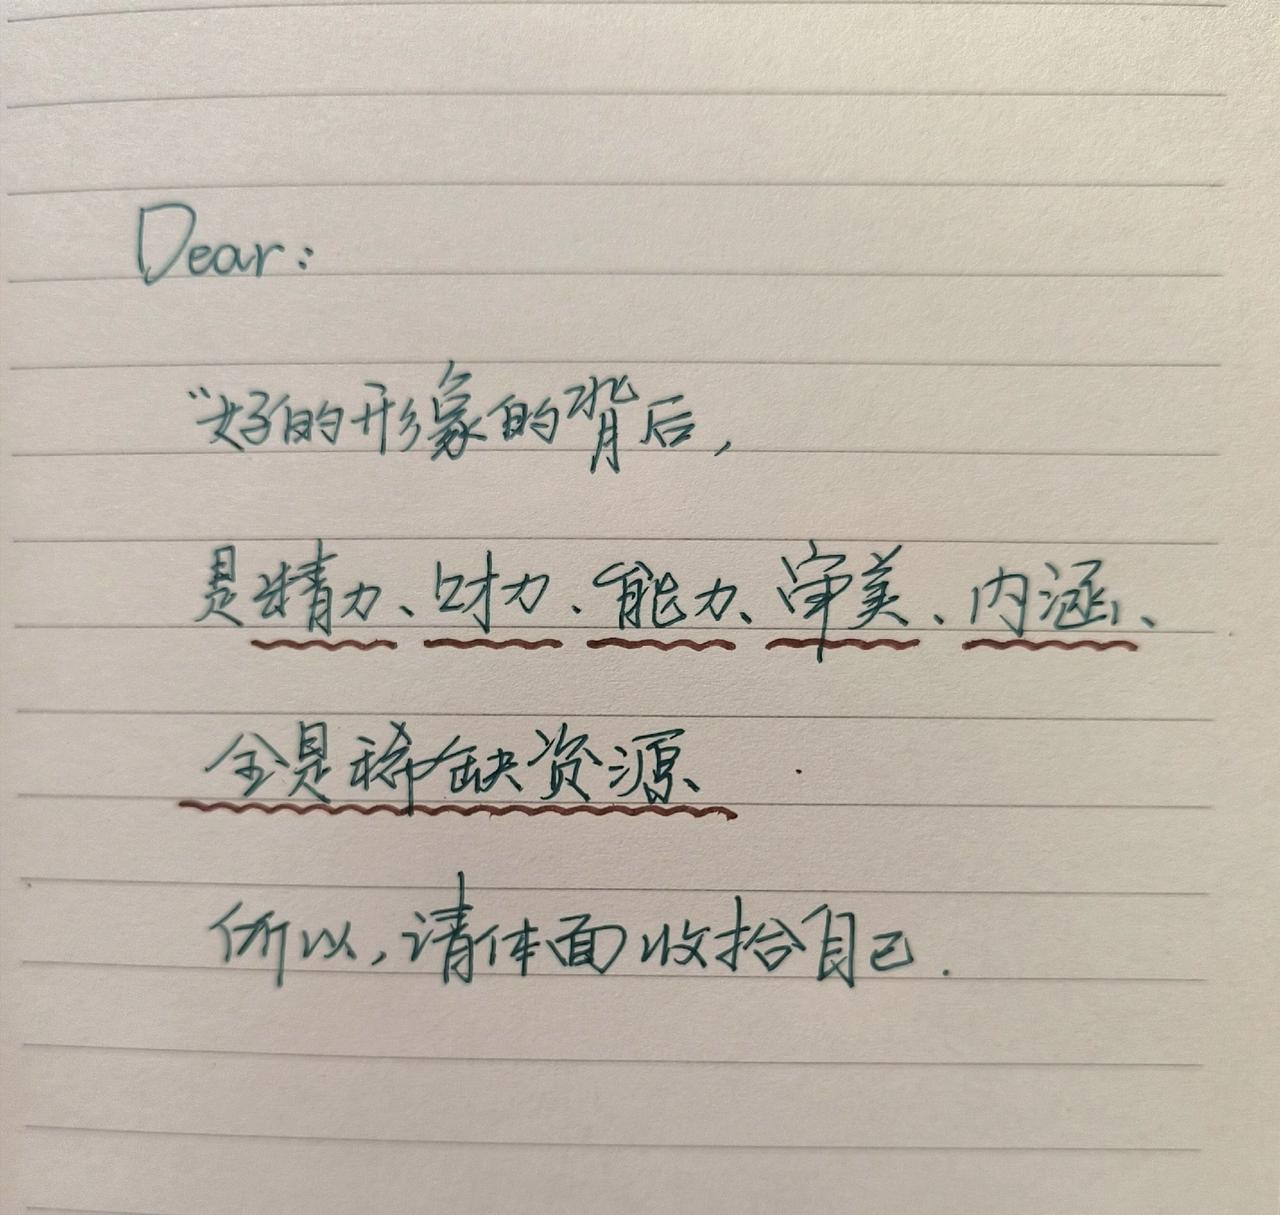 Dear:
“好的形象的背后,
是精力、财力、能力、审美、内涵、
全是稀缺资源、
所以,请体面收拾自己.